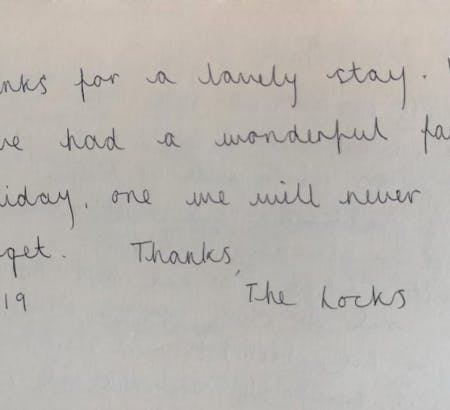 nks for a lovely stay.
ve had a wonderful fa
iday, one we will never
get. Thanks,
19 The Locks